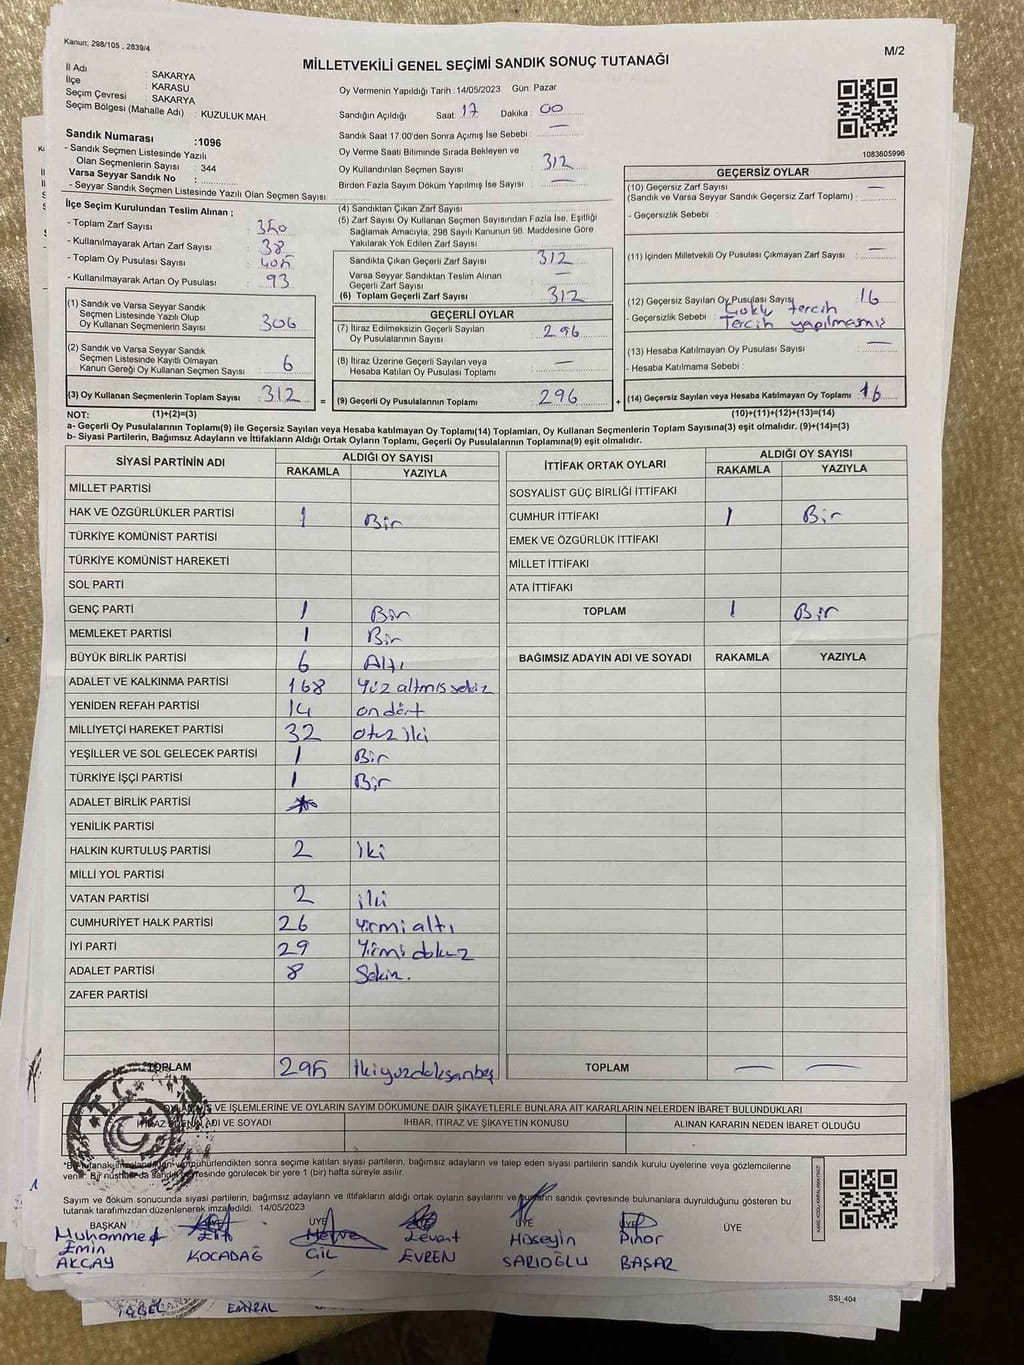 Kanun; 298/105 , 2839/4
M/2
MİLLETVEKİLİ GENEL SEÇİMİ SANDIK SONUÇ TUTANAĞI
İl Adı : SAKARYA
İlçe : KARASU
Seçim Çevresi : SAKARYA
Seçim Bölgesi (Mahalle Adı) : KUZULUK MAH.
Sandık Numarası :1096
- Sandık Seçmen Listesinde Yazılı
Olan Seçmenlerin Sayısı : 344
Varsa Seyyar Sandık No :
- Seyyar Sandık Seçmen Listesinde Yazılı Olan Seçmen Sayısı
Oy Vermenin Yapıldığı Tarih :14/05/2023 Gün: Pazar
Sandığın Açıldığı Saat: 17 Dakika: 00
Sandık Saat 17.00'den Sonra Açımış İse Sebebi : —
Oy Verme Saati Bitiminde Sırada Bekleyen ve
Oy Kullandırılan Seçmen Sayısı : 312
Birden Fazla Sayım Döküm Yapılmış İse Sayısı : —
1083605996
İlçe Seçim Kurulundan Teslim Alınan ;
- Toplam Zarf Sayısı : 350
- Kullanılmayarak Artan Zarf Sayısı : 38
- Toplam Oy Pusulası Sayısı : 405
- Kullanılmayarak Artan Oy Pusulası : 93
(1) Sandık ve Varsa Seyyar Sandık
Seçmen Listesinde Yazılı Olup
Oy Kullanan Seçmenlerin Sayısı : 306
(2) Sandık ve Varsa Seyyar Sandık
Seçmen Listesinde Kayıtlı Olmayan
Kanun Gereği Oy Kullanan Seçmen Sayısı : 6
(3) Oy Kullanan Seçmenlerin Toplam Sayısı : 312 =
(4) Sandıktan Çıkan Zarf Sayısı
(5) Zarf Sayısı Oy Kullanan Seçmen Sayısından Fazla İse, Eşitliği
Sağlamak Amacıyla, 298 Sayılı Kanunun 98. Maddesine Göre
Yakılarak Yok Edilen Zarf Sayısı
Sandıkta Çıkan Geçerli Zarf Sayısı : 312
Varsa Seyyar Sandıktan Teslim Alınan
Geçerli Zarf Sayısı : —
(6) Toplam Geçerli Zarf Sayısı : 312
GEÇERLİ OYLAR
(7) İtiraz Edilmeksizin Geçerli Sayılan
Oy Pusulalarının Sayısı : 296
(8) İtiraz Üzerine Geçerli Sayılan veya
Hesaba Katılan Oy Pusulası Toplamı : —
(9) Geçerli Oy Pusulalarının Toplamı : 296 +
GEÇERSİZ OYLAR
(10) Geçersiz Zarf Sayısı —
(Sandık ve Varsa Seyyar Sandık Geçersiz Zarf Toplamı) :
- Geçersizlik Sebebi :
(11) İçinden Milletvekili Oy Pusulası Çıkmayan Zarf Sayısı : —
(12) Geçersiz Sayılan Oy Pusulası Sayısı 16
- Geçersizlik Sebebi : Çoklu tercih
Tercih yapılmamış
(13) Hesaba Katılmayan Oy Pusulası Sayısı : —
- Hesaba Katılmama Sebebi :
(14) Geçersiz Sayılan veya Hesaba Katılmayan Oy Toplamı : 16
NOT: (1)+(2)=(3) (10)+(11)+(12)+(13)=(14)
a- Geçerli Oy Pusulalarının Toplamı(9) ile Geçersiz Sayılan veya Hesaba Katılmayan Oy Toplamı(14) Toplamları, Oy Kullanan Seçmenlerin Toplam Sayısına(3) eşit olmalıdır. (9)+(14)=(3)
b- Siyasi Partilerin, Bağımsız Adayların ve İttifakların Aldığı Ortak Oyların Toplamı, Geçerli Oy Pusulalarının Toplamına(9) eşit olmalıdır.
SİYASİ PARTİNİN ADI ALDIĞI OY SAYISI
RAKAMLA YAZIYLA
MİLLET PARTİSİ
HAK VE ÖZGÜRLÜKLER PARTİSİ 1 Bir
TÜRKİYE KOMÜNİST PARTİSİ
TÜRKİYE KOMÜNİST HAREKETİ
SOL PARTİ
GENÇ PARTİ 1 Bir
MEMLEKET PARTİSİ 1 Bir
BÜYÜK BİRLİK PARTİSİ 6 Altı
ADALET VE KALKINMA PARTİSİ 168 Yüz altmış sekiz
YENİDEN REFAH PARTİSİ 14 on dört
MİLLİYETÇİ HAREKET PARTİSİ 32 otuz iki
YEŞİLLER VE SOL GELECEK PARTİSİ 1 Bir
TÜRKİYE İŞÇİ PARTİSİ 1 Bir
ADALET BİRLİK PARTİSİ
YENİLİK PARTİSİ
HALKIN KURTULUŞ PARTİSİ 2 iki
MİLLİ YOL PARTİSİ
VATAN PARTİSİ 2 iki
CUMHURİYET HALK PARTİSİ 26 Yirmi altı
İYİ PARTİ 29 Yirmi dokuz
ADALET PARTİSİ 8 Sekiz.
ZAFER PARTİSİ
TOPLAM 295 İkiyüzdoksanbeş
İTTİFAK ORTAK OYLARI ALDIĞI OY SAYISI
RAKAMLA YAZIYLA
SOSYALİST GÜÇ BİRLİĞİ İTTİFAKI
CUMHUR İTTİFAKI 1 Bir
EMEK VE ÖZGÜRLÜK İTTİFAKI
MİLLET İTTİFAKI
ATA İTTİFAKI
TOPLAM 1 Bir
BAĞIMSIZ ADAYIN ADI VE SOYADI RAKAMLA YAZIYLA
TOPLAM — —
T.C.
VE İŞLEMLERİNE VE OYLARIN SAYIM DÖKÜMÜNE DAİR ŞİKAYETLERLE BUNLARA AİT KARARLARIN NELERDEN İBARET BULUNDUKLARI
İTİRAZ EDENİN ADI VE SOYADI İHBAR, İTİRAZ VE ŞİKAYETİN KONUSU ALINAN KARARIN NEDEN İBARET OLDUĞU
*Bu tutanak imzalandıktan ve mühürlendikten sonra seçime katılan siyasi partilerin, bağımsız adayların ve talep eden siyasi partilerin sandık kurulu üyelerine veya gözlemcilerine
verilir. Bir nüshası da sandık çevresinde görülecek bir yere 1 (bir) hafta süreyle asılır.
Sayım ve döküm sonucunda siyasi partilerin, bağımsız adayların ve ittifakların aldığı ortak oyların sayılarını ve bunların sandık çevresinde bulunanlara duyrulduğunu gösteren bu
tutanak tarafımızdan düzenlenerek imza edildi. 14/05/2023
BAŞKAN ÜYE ÜYE ÜYE ÜYE ÜYE ÜYE
Muhammed Elif Merve Levent Hüseyin Pınar
Emin KOCADAĞ GİL EVREN SARIOĞLU BAŞAR
AKÇAY
SSI_404
İÇBEL